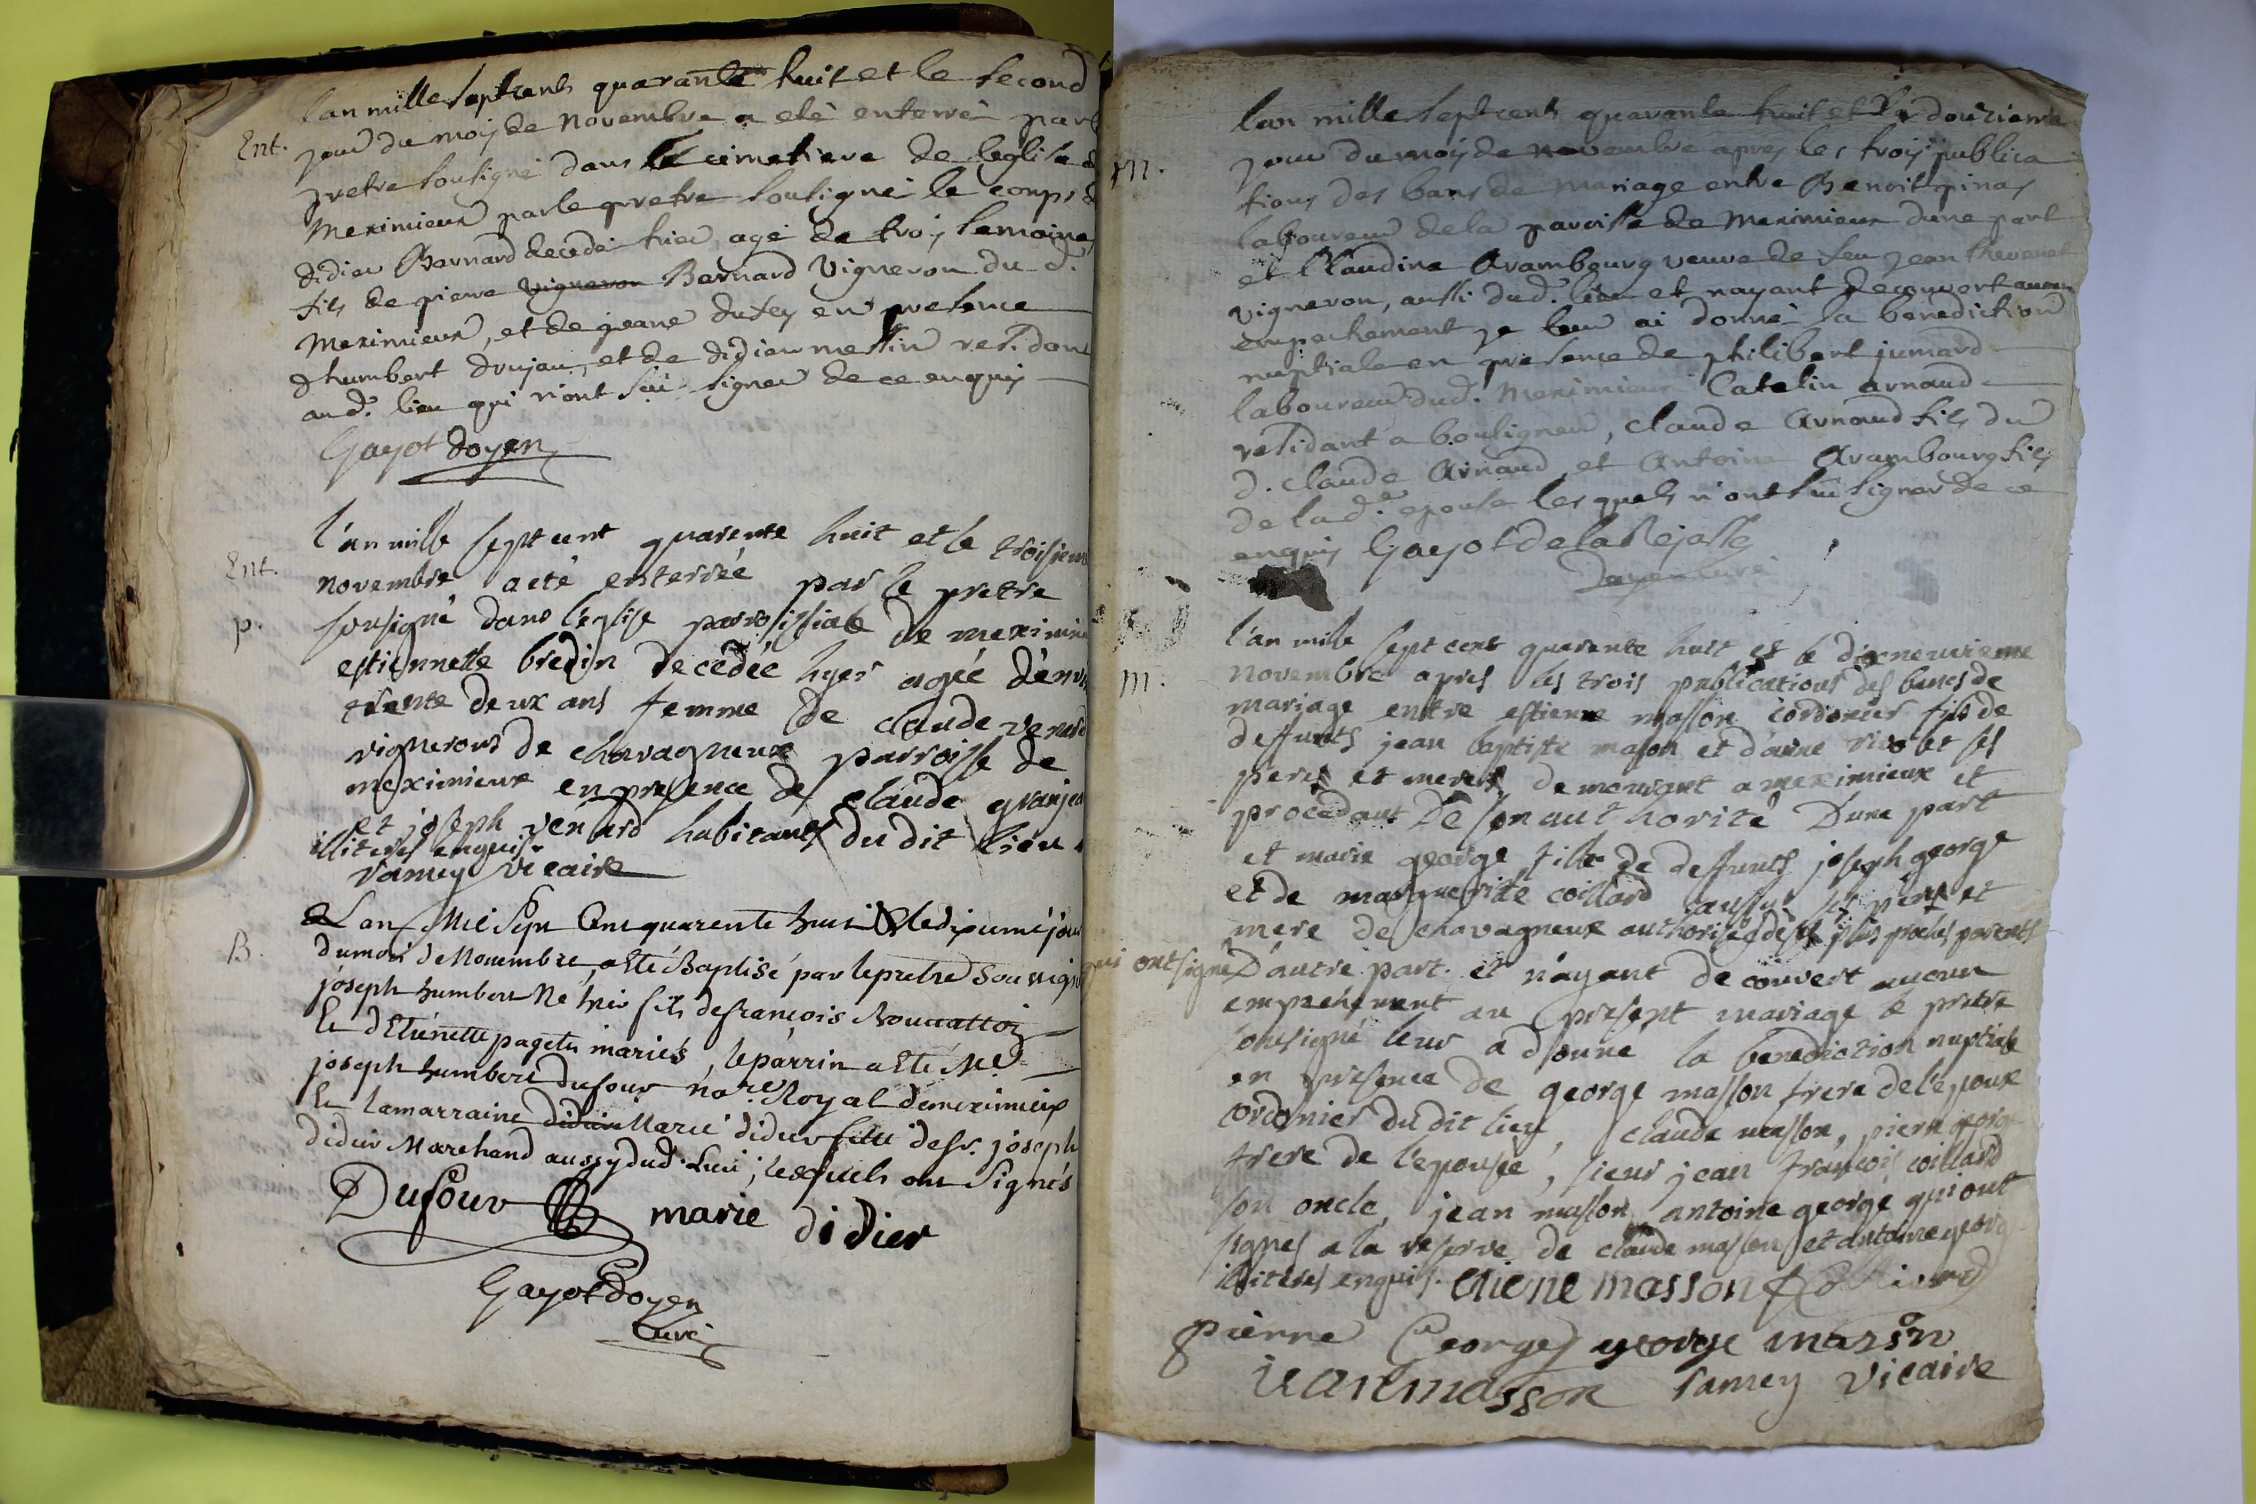 l'an mille septcents quarante huit et le second
Ent.
jour du mois de novembre a eté enterré par le
pretre sousigné dans le cimetiere de l'eglise de
Meximieux par le pretre sousigné le corps de
didier Barnard decedé hier agé de trois semaines
fils de pierre vigneron Barnard vigneron du d.
Meximieux, et de jeane dutey en presence
d'humbert drujon, et de didier messin resident
au d. lieu qui n'ont sçu signer de ce enquis
Gayot doyen
l'an mille sept cent quarente huit et le troisieme
Ent.
novembre a eté enterrée par le pretre
p.
sousigné dans l'eglise parroissiale de meximieux
estiennette bredin decedée hyer agée d'environ
trente deux ans femme de claude venard
vignerons de chavagneux parroisse de
meximieux en presence de claude granjea
et joseph venard habitants du dit lieu
illiterés enquis.
ramey vicaire
L'an Mil Sept Cent quarente huit & le dixieme jour
B.
du mois de Novembre, a Eté Baptisé par le pretre Sousigné
joseph humbert Né hier fils de francois
Et d'Etiénette pagetti mariés, le parrin a Eté Me
joseph humbert dufour no.re Royal de meximieux
Et la marraine didier Marie didier fille de Sr. joseph
didier Marchand aussy dud. Lieu; lesquels ont Signés
Dufour marie didier
Gayot doyen
curé
l'an mille septcents quarante huit et le douzieme
m.
jour du mois de novembre apres les trois publica
tions des bans de mariage entre Benoit pinas
laboureur de la paroisse de Meximieux d'une part
et Claudine Arambourg veuve de feu jean thevenet
vigneron, aussi dud. lieu et n'ayant decouvert aucun
empechement je leur ai donné la benediction
nuptiale en presence de philibert jumard
laboureur dud. Meximieux Catelin arnaud
residant a bouligneu, claude Arnaud fils du
d. claude Arnaud et Antoine Arambourg fils
de la d.e epouse lesquels n'ont sçu signer de ce
enquis Gayot de la Rejasse
doyen curé
l'an mille sept cent quarente huit et le dixneuvieme
m.
novembre apres les trois publications des bancs de
mariage entre estienne masson cordonier fils de
deffunts jean baptiste mason et d'anne rivolet ses
peres et meres, demeurant a meximieux et
procedant de son authorité d'une part
et marie george fille de deffunts joseph george
et de marguerite coillard aussy ses pere et
mere de chavagneux authorisée de ses plus proches parents
qui ont signé D'autre part. et n'ayant decouvert aucun
empechement au present mariage le pretre
sousigné leur a donné la benediction nuptiale
en presence de george masson frere de l'epoux
cordonier du dit lieu, claude masson, pierre george
frere de l'epousée, sieur jean françois coillard
son oncle, jean masson antoine george qui ont
signes a la reserve de claude masson et antoine george
illiterés enquis. etiene masson
pierre George george mason
iean masson ramey vicaire